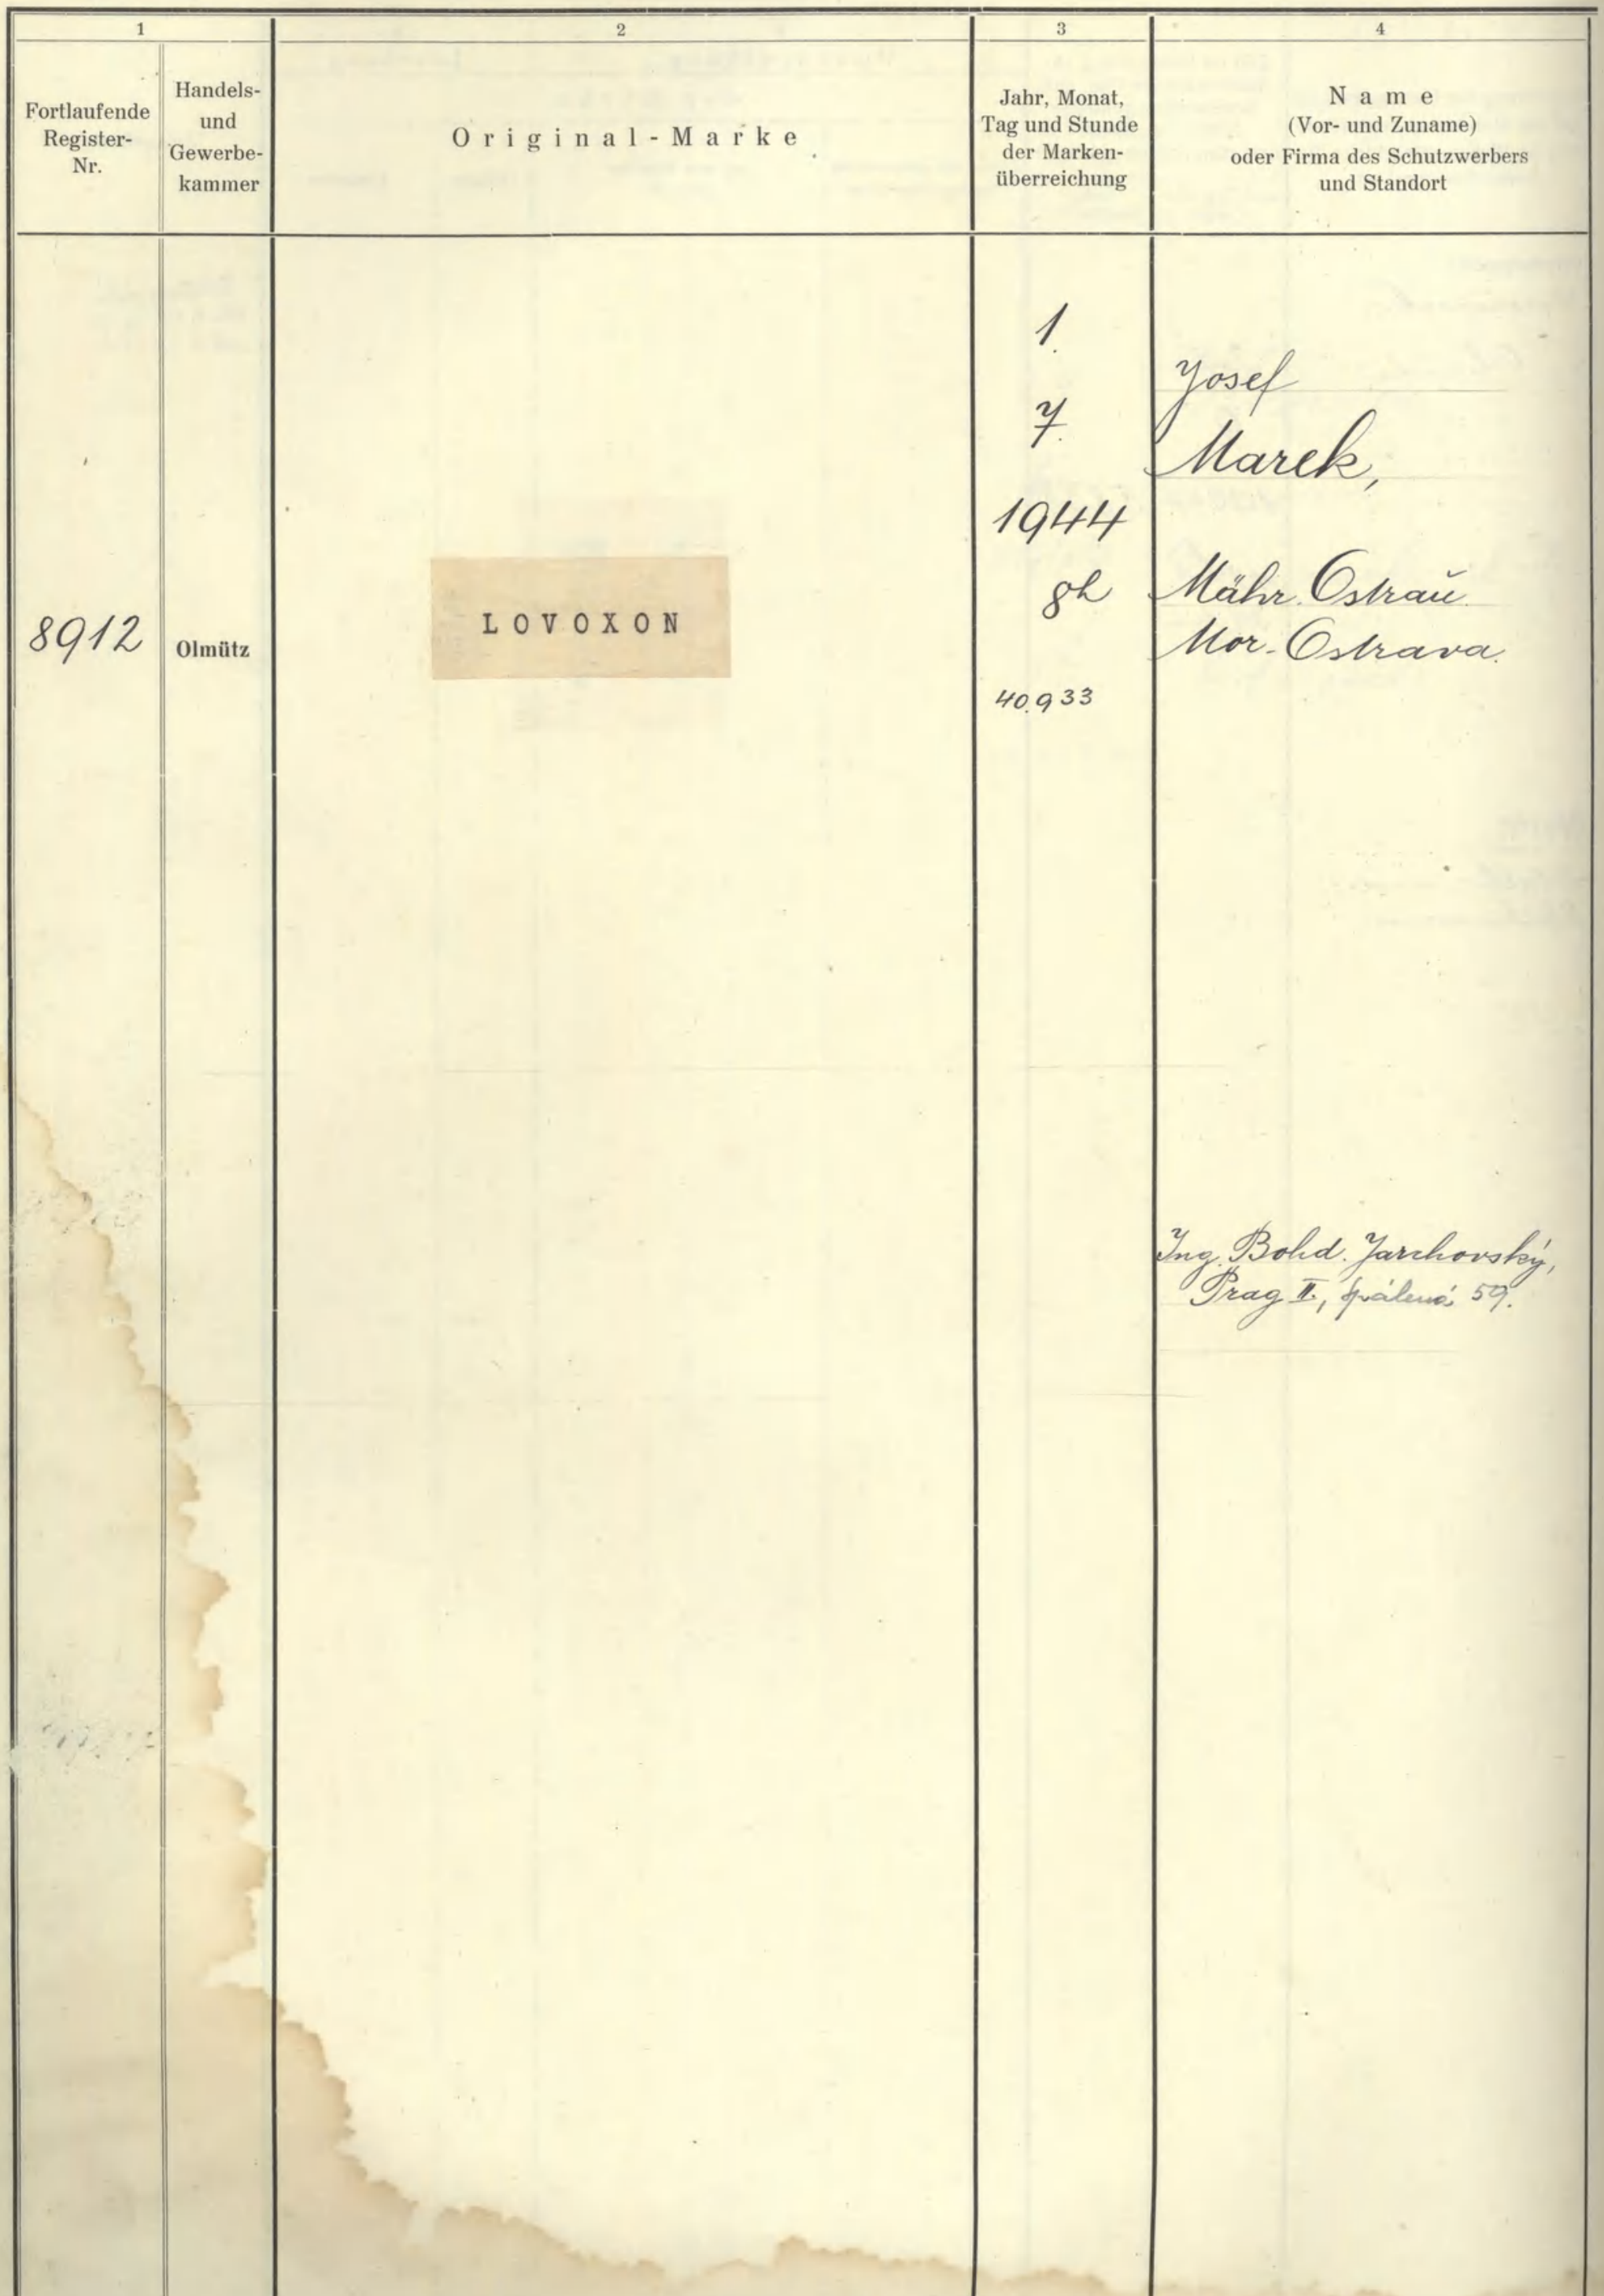 1
2
3
4
Fortlaufende
Register-
Nr.
Handels-
und
Gewerbe-
kammer
Original-Marke
Jahr, Monat,
Tag und Stunde
der Marken-
überreichung
Name
(Vor- und Zuname)
oder Firma des Schutzwerbers
und Standort
8912
Olmütz
LOVOXON
1.
7.
1944
8h
40.933
Josef
Marek,
Mähr. Ostrau.
Mor. Ostrava.
Ing. Bohd. Jarchovský,
Prag II., Spálená 59.